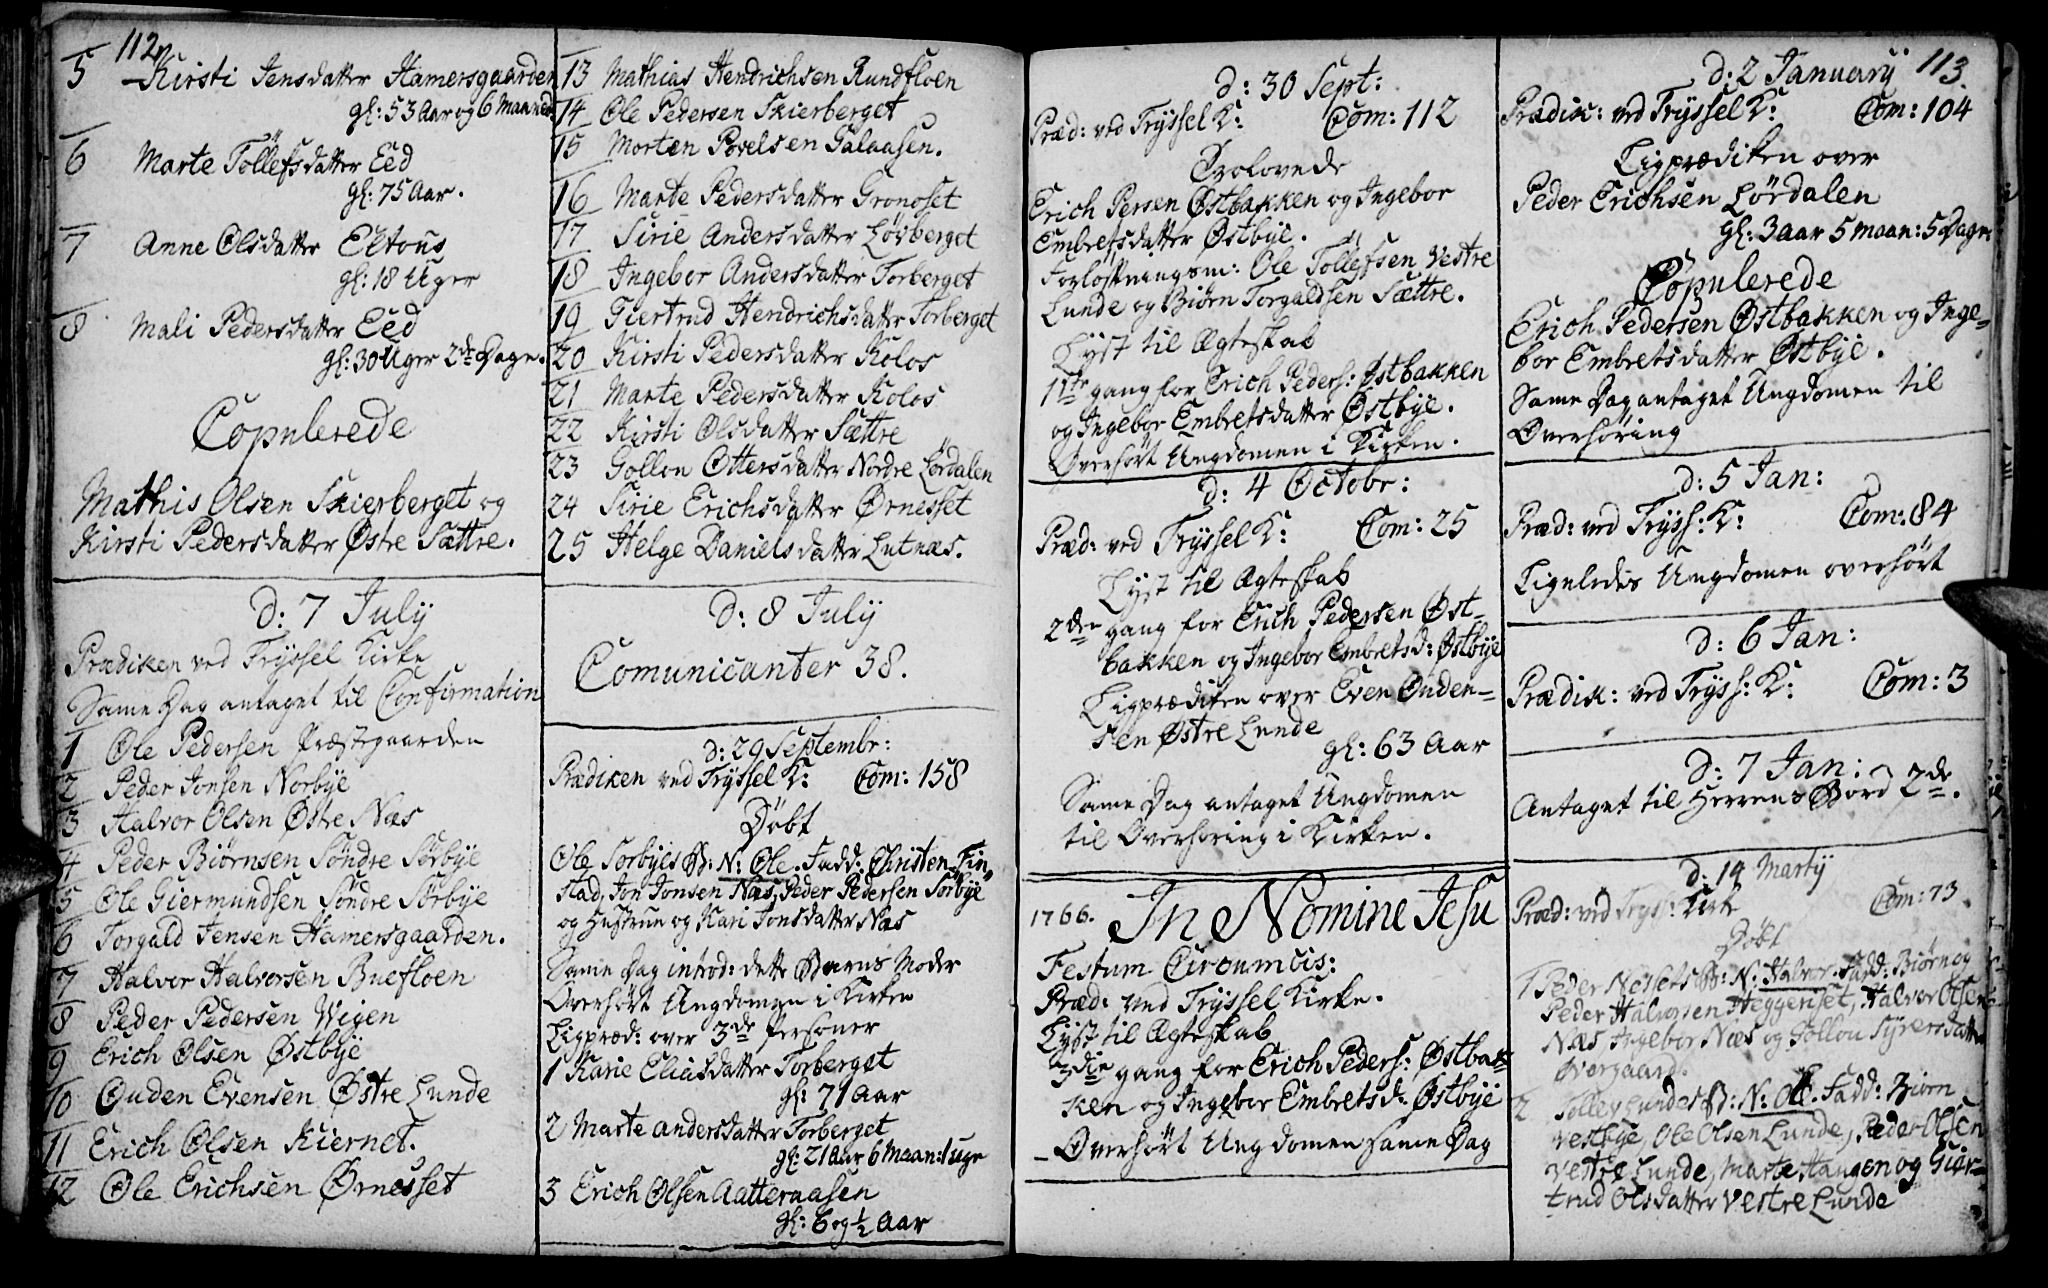 112
5 Kirsti Jensdatter Hamersgaarden
gl: 53 Aar og 6 Maaned.
6 Marte Tollefsdatter Eed
gl: 75 Aar.
7 Anne Olsdatter Eltous
gl: 18 Uger
8 Mali Pedersdatter Eed
gl: 30 Uger 2de Dage.
Copulerede
Mathis Olsen Skierberget og
Kirsti Pedersdatter Østre Sættre.
D: 7 July
Prædiken ved Tryssel Kirke
Same Dag antaget til Confirmation
1 Ole Pedersen Præstegaarden
2 Peder Jonsen Norbye
3 Halvor Olsen Østre Næs
4 Peder Biørnsen Søndre Sørbye
5 Ole Giermundsen Søndre Sørbye
6 Torgald Jensen Hamersgaarden.
7 Halvor Halvorsen Buefloen
8 Peder Pedersen Wigen
9 Erich Olsen Østbye
10 Ouden Evensen Østre Lunde
11 Erich Olsen Kiernet.
12 Ole Erichsen Ørnesset
13 Mathias Hendrichsen Rundfloen
14 Ole Pedersen Skierberget
15 Morten Povelsen Galaasen.
16 Marte Pedersdatter Gronoset
17 Sirie Andersdatter Løvberget
18 Ingebor Andersdatter Torberget
19 Giertrud Hendrichsdatter Torberget
20 Kirsti Pedersdatter Kolos
21 Marte Pedersdatter Kolos
22 Kirsti Olsdatter Sættre
23 Gollou Ottersdatter Nordre Lørdalen
24 Sirie Erichsdatter Ørnesset
25 Helge Danielsdatter Lutnæs.
D: 8 July
Comunicanter 38.
D: 29 Septembr:
Prædiken ved Tryssel K: Com: 158
Døbt
Ole Sorbyes B: N: Ole. Fadd: Christen Fin,
stad, Jon Jonsen Næs, Peder Pedersen Sorbye
og Hustrue og Kari Jonsdatter Næs
Same Dag introd: dette Barns Moder
Overhørt Ungdomen i Kirken
Ligpræd: over 3de Personer
1 Karie Eliasdatter Torberget
gl: 71 Aar
2 Marte Andersdatter Torberget
gl: 21 Aar 6 Maan: 1 uge
3 Erich Olsen Aatteraasen
gl: 6 og ½ Aar
d: 30 Sept:
Præd: ved Tryssel K: Com: 112
Trolovede
Erich Persen Østbakken og Ingebor
Embretsdatter Østbye.
Forlostningsm: Ole Tollefsen Vestre
Lunde og Biørn Torgaldsen Sættre.
Lyst til Ægteskab
1ste gang for Erich Peders: Østbakken
og Ingebor Embretsdatter Østbye.
Overhørt Ungdomen i Kirken.
d: 4 Octobr:
Præd: ved Tryssel K: Com: 25
Lyst til Ægteskab
2den gang for Erich Pedersen Øst-
bakken og Ingebor Embretsd: Østbye
Ligprædiken over Even Ouden-
sen Østre Lunde
gl: 63 Aar
Same Dag antaget Ungdomen
til Overhøring i Kirken.
1766. In Nomine Jesu
Festum Circumcis:
Præd: ved Tryssel Kirke.
Lyst til Ægteskab
3die gang for Erich Peders: Østbak-
ken og Ingebor Embretsd: Østbye
- Overhørt Ungdomen same Dag
113.
d: 2 January
Prædik: ved Tryssel K: Com: 104
Ligprædiken over
Peder Erichsen Lørdalen
gl: 3 aar 5 maan: 5 Dage
Copulerede
Erich Pedersen Østbakken og Inge-
bor Embretsdatter Østbye.
Same Dag antaget Ungdomen til
Overhøring
d: 5 Jan:
Præd: ved Tryss: K: Com: 84
Ligeledes Ungdomen overhørt
d: 6 Jan:
Prædik: ved Tryss: K: Com: 3
d: 7 Jan:
Antaget til Herrens Bord 2de.
d: 14 Martij
Præd: ved Tryss: Kirk Com: 73
Døbt
1 Peder B: N: Halvor. Fadd: Biørn og
Peder Halvorsen Heggeriset, Halvor Olsen
Næs Ingebor Næs og Gollou Syversdatter
Overgaard.
2 Tollev Lundes B: N: Ole. Fadd: Biørn
Vestbye, Ole Olsen Lunde, Peder Olsen
Vestre Lunde, Marte Haugen og Gier-
trud Olsdatter Vestre Lunde